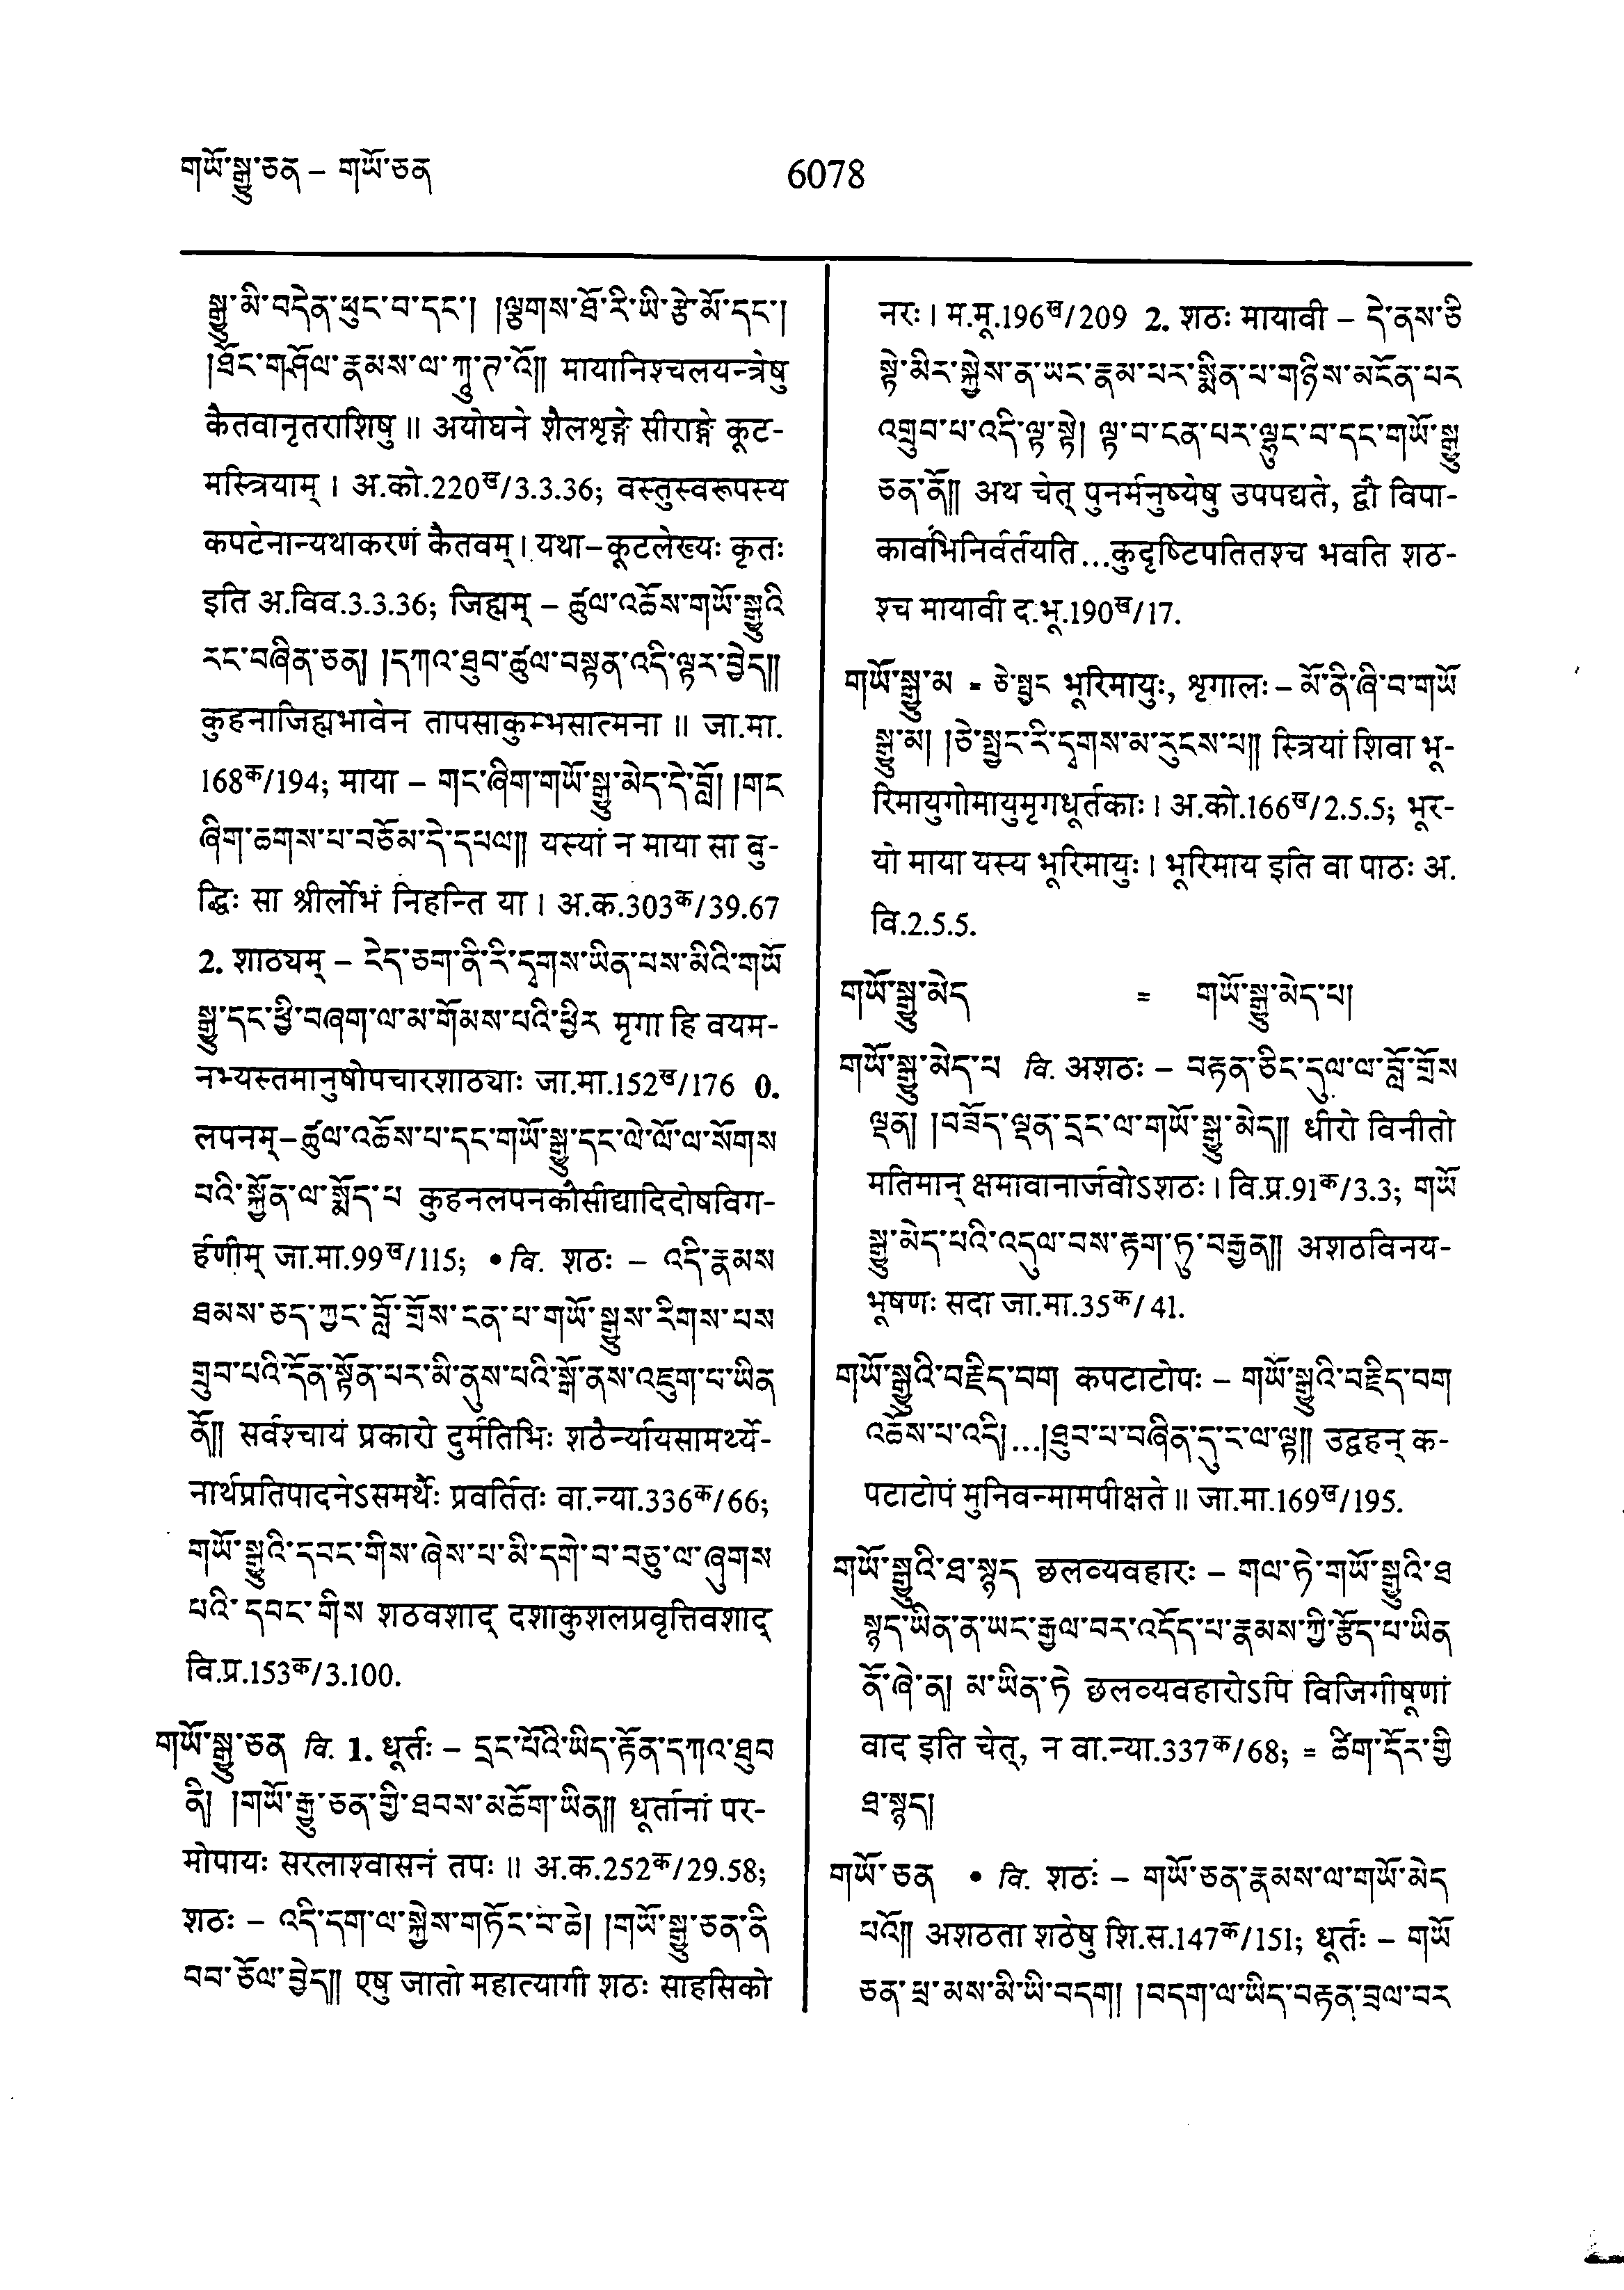 གཡོ་སྒྱུ་ཅན – གཡོ་ཅན
6078
སྒྱུ་མི་བདེན་ཕུང་བ་དང་། །ལྕགས་ཐོ་རི་ཡི་རྩེ་མོ་དང་།
།ཐོང་གཤོལ་རྣམས་ལ་ཀཱུ་ཊ་འོ༎ मायानिश्चलयन्त्रेषु
कैतवानृतराशिषु ॥ अयोघने शैलशृङ्गे सीराङ्गे कूट-
मस्त्रियाम् । अ.को.220ख/3.3.36; वस्तुस्वरूपस्य
कपटेनान्यथाकरणं कैतवम् । यथा–कूटलेख्यः कृतः
इति अ.विव.3.3.36; जिह्मम् – ཚུལ་འཆོས་གཡོ་སྒྱུའི
རང་བཞིན་ཅན། །དཀའ་ཐུབ་ཚུལ་བསྟན་འདི་ལྟར་བྱེད༎
कुहनाजिह्मभावेन तापसाकुम्भसात्मना ॥ जा.मा.
168क/194; माया – གང་ཞིག་གཡོ་སྒྱུ་མེད་དེ་བློ། །གང
ཞིག་ཆགས་པ་བཅོམ་དེ་དཔལ༎ यस्यां न माया सा बु-
द्धिः सा श्रीर्लोभं निहन्ति या । अ.क.303क/39.67
2. शाठ्यम् – ངེད་ཅག་ནི་རི་དྭགས་ཡིན་པས་མིའི་གཡོ
སྒྱུ་དང་ཕྱི་བཞག་ལ་མ་གོམས་པའི་ཕྱིར मृगा हि वयम-
नभ्यस्तमानुषोपचारशाठ्याः जा.मा.152ख/176 0.
लपनम्–ཚུལ་འཆོས་པ་དང་གཡོ་སྒྱུ་དང་ལེ་ལོ་ལ་སོགས
པའི་སྐྱོན་ལ་སྨོད་པ कुहनलपनकौसीद्यादिदोषविग-
र्हणीम् जा.मा.99ख/115; • वि. शठः – འདི་རྣམས
ཐམས་ཅད་ཀྱང་བློ་གྲོས་ངན་པ་གཡོ་སྒྱུས་རིགས་པས
གྲུབ་པའི་དོན་སྟོན་པར་མི་ནུས་པའི་སྒོ་ནས་འཇུག་པ་ཡིན
ནོ༎ सर्वश्चायं प्रकारो दुर्मतिभिः शठैर्न्यायसामर्थ्ये-
नार्थप्रतिपादनेऽसमर्थैः प्रवर्तितः वा.न्या.336क/66;
གཡོ་སྒྱུའི་དབང་གིས་ཞེས་པ་མི་དགེ་བ་བཅུ་ལ་ཞུགས
པའི་དབང་གིས शठवशाद् दशाकुशलप्रवृत्तिवशाद्
वि.प्र.153क/3.100.
གཡོ་སྒྱུ་ཅན वि. 1. धूर्तः – དྲང་པོའི་ཡིད་རྟོན་དཀའ་ཐུབ
ནི། །གཡོ་རྒྱུ་ཅན་གྱི་ཐབས་མཆོག་ཡིན༎ धूर्तानां पर-
मोपायः सरलाश्वासनं तपः ॥ अ.क.252क/29.58;
शठः – འདི་དག་ལ་སྐྱེས་གཏོང་བ་ཆེ། །གཡོ་སྒྱུ་ཅན་ནི
བབ་ཅོལ་བྱེད༎ एषु जातो महात्यागी शठः साहसिको
नरः । म.मू.196ख/209 2. शठः मायावी – དེ་ནས་ཅི
སྟེ་མིར་སྐྱེས་ན་ཡང་རྣམ་པར་སྨིན་པ་གཉིས་མངོན་པར
འགྲུབ་པ་འདི་ལྟ་སྟེ། ལྟ་བ་ངན་པར་ལྷུང་བ་དང་གཡོ་སྒྱུ
ཅན་ནོ༎ अथ चेत् पुनर्मनुष्येषु उपपद्यते, द्वौ विपा-
कावभिनिर्वर्तयति...कुदृष्टिपतितश्च भवति शठ-
श्च मायावी द.भू.190ख/17.
གཡོ་སྒྱུ་མ = ཅེ་སྤྱང भूरिमायुः, शृगालः – མོ་ནི་ཞི་བ་གཡོ
སྒྱུ་མ། །ཅེ་སྤྱང་རི་དྭགས་མ་རུངས་པ༎ स्त्रियां शिवा भू-
रिमायुगोमायुमृगधूर्तकाः । अ.को.166ख/2.5.5; भूर-
यो माया यस्य भूरिमायुः । भूरिमाय इति वा पाठः अ.
वि.2.5.5.
གཡོ་སྒྱུ་མེད = གཡོ་སྒྱུ་མེད་པ།
གཡོ་སྒྱུ་མེད་པ वि. अशठः – བརྟན་ཅིང་དུལ་ལ་བློ་གྲོས
ལྡན། །བཟོད་ལྡན་དྲང་ལ་གཡོ་སྒྱུ་མེད༎ धीरो विनीतो
मतिमान् क्षमावानार्जवोऽशठः । वि.प्र.91क/3.3; གཡོ
སྒྱུ་མེད་པའི་འདུལ་བས་རྟག་ཏུ་བརྒྱན༎ अशठविनय-
भूषणः सदा जा.मा.35क/41.
གཡོ་སྒྱུའི་བརྗིད་བག कपटाटोपः – གཡོ་སྒྱུའི་བརྗིད་བག
འཆོས་པ་འདི། ...།ཐུབ་པ་བཞིན་དུ་ང་ལ་ལྟ༎ उद्वहन् क-
पटाटोपं मुनिवन्मामपीक्षते ॥ जा.मा.169ख/195.
གཡོ་སྒྱུའི་ཐ་སྙད छलव्यवहारः – གལ་ཏེ་གཡོ་སྒྱུའི་ཐ
སྙད་ཡིན་ན་ཡང་རྒྱལ་བར་འདོད་པ་རྣམས་ཀྱི་རྩོད་པ་ཡིན
ནོ་ཞེ་ན། མ་ཡིན་ཏེ छलव्यवहारोऽपि विजिगीषूणां
वाद इति चेत्, न वा.न्या.337क/68; = ཚིག་དོར་གྱི
ཐ་སྙད།
གཡོ་ཅན • वि. शठः – གཡོ་ཅན་རྣམས་ལ་གཡོ་མེད
པའོ༎ अशठता शठेषु शि.स.147क/151; धूर्तः – གཡོ
ཅན་ཕྲ་མས་མི་ཡི་བདག། །བདག་ལ་ཡིད་བརྟན་བྲལ་བར